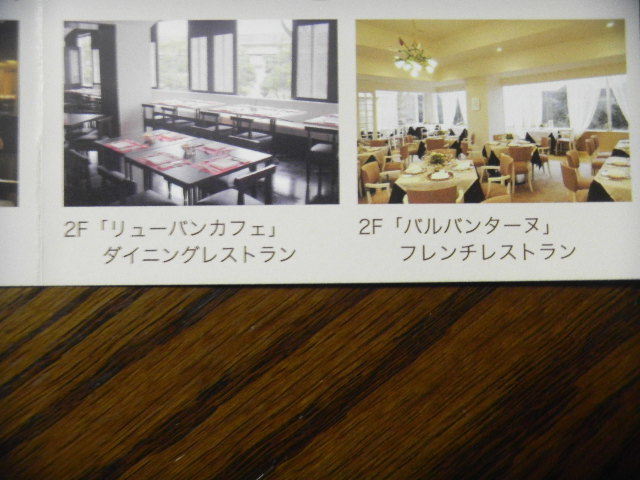 2F「リューバンカフェ」
ダイニングレストラン
2F「バルバンターヌ」
フレンチレストラン